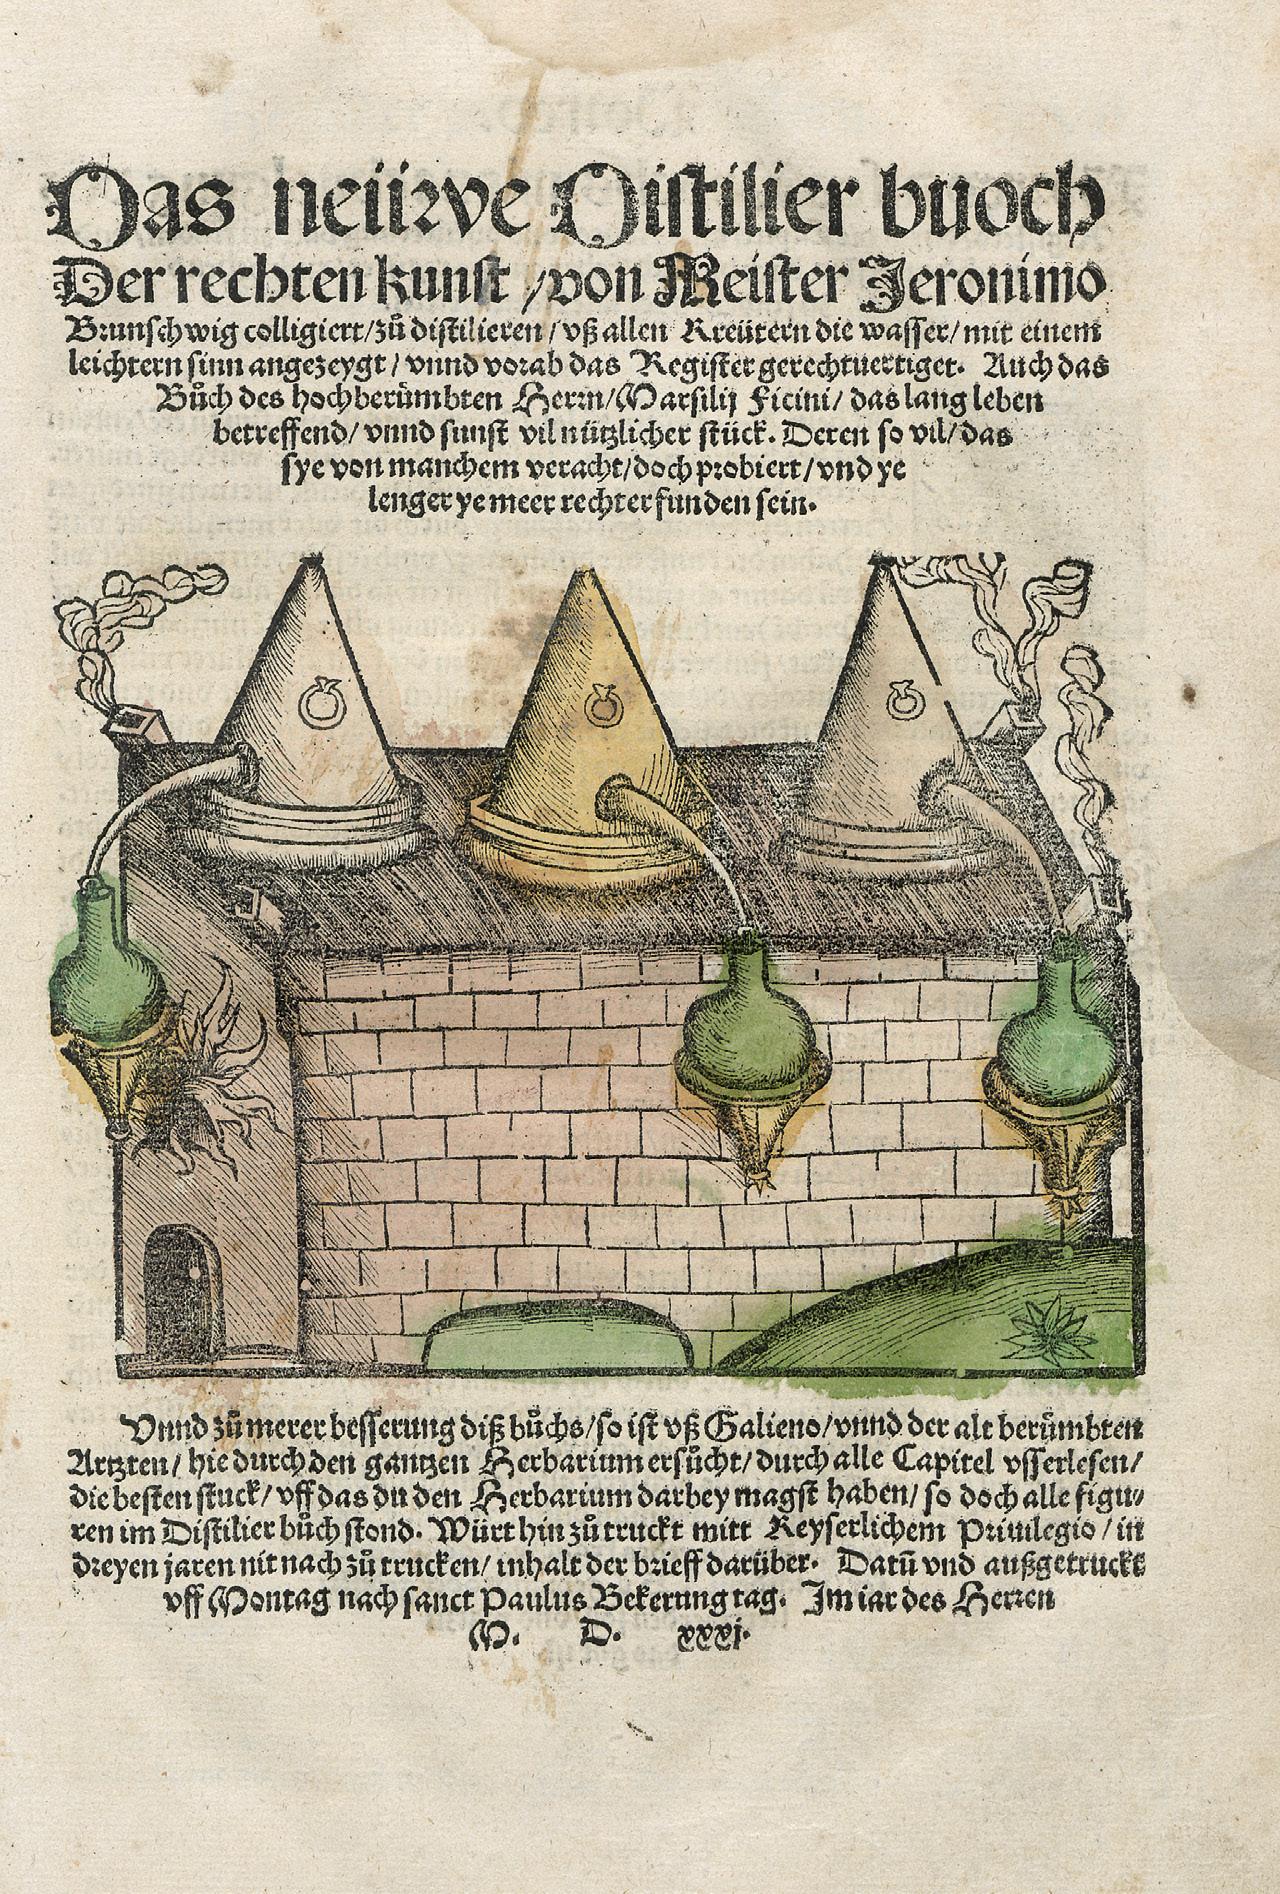 Das neüwe Distilier buoch
Der rechten kunst / von Meister Jeronimo
Brunschwig colligiert/zů distilieren/vß allen Kreütern die wasser/mit einem
leichtern sinn angezeygt/vnnd vorab das Register gerechtuertiget. Auch das
Bůch des hochberůmbten Herrn/Marsilij Ficini/das lang leben
betreffend/vnnd sunst vil nützlicher stück. Deren so vil/das
sye von manchem veracht/doch probiert/vnd ye
lenger ye meer recht erfunden sein.
Vnnd zů merer besserung diß bůchs/so ist vß Galieno/vnnd der alt berůmbten
Artzten/hie durch den gantzen Herbarium ersůcht/durch alle Capitel vsserlesen/
die besten stuck/vff das du den Herbarium darbey magst haben/so doch alle figu⸗
ren im Distilier bůch stond. Würt hin zů truckt mitt Keyserlichem Priuilegio/in
dreyen jaren nit nach zů trucken/inhalt der brieff darüber. Datū vnd außgetruckt
vff Montag nach sanct Paulus Bekerung tag. Im iar des Herren
M. D. xxxj.